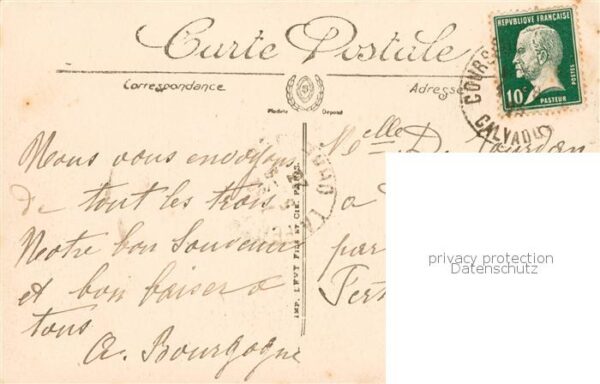 Carte Postale
Correspondance
Adresse
Modèle Déposé
REPVBLIQUE FRANÇAISE
POSTES
10c
PASTEUR
COURS
CALVADOS
Nous vous envoyons
de tout les trois
Notre bon Souvenir
et bon baiser à
tous
A. Bourgogne
IMP. LEVY FILS ET CIE. PARIS
Melle D.
a
par
Fer
privacy protection
Datenschutz